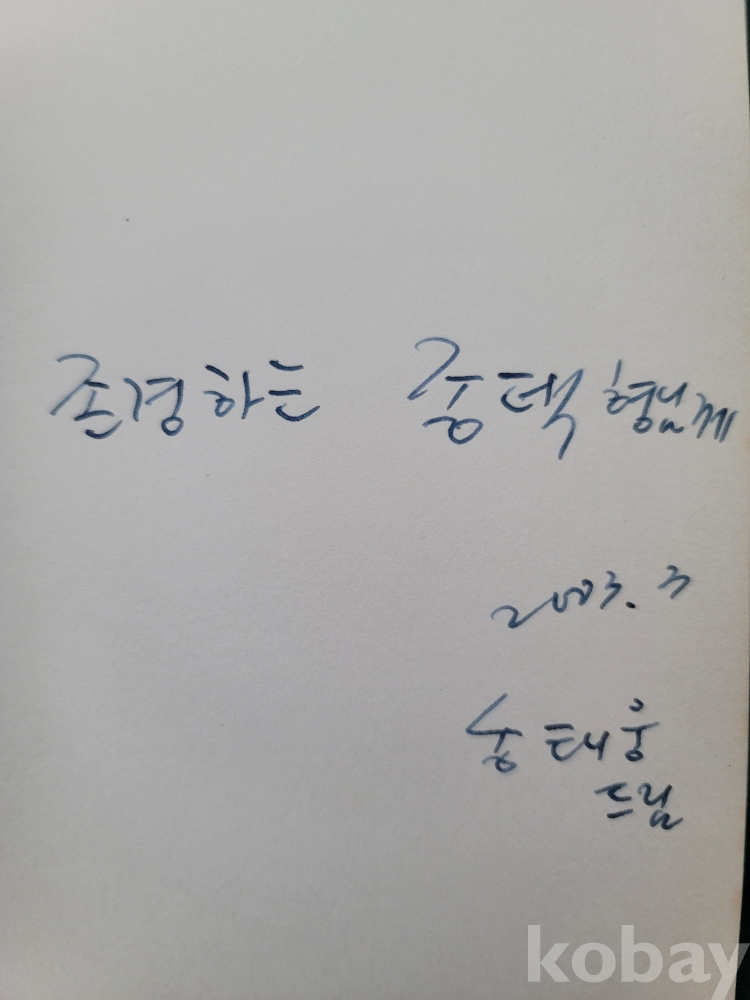 존경하는 종택 형님께
2003. 3
송태웅
드림
kobay